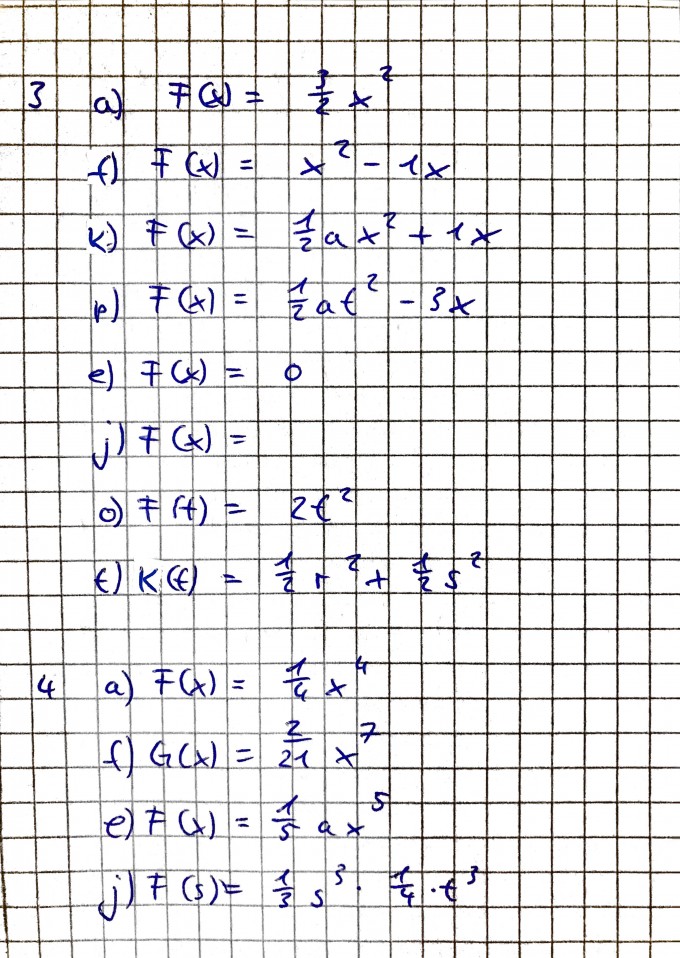 3 a) F(x) = 3/2 x²
f) F(x) = x² - 1x
k) F(x) = 1/2 a x² + 1x
p) F(x) = 1/2 a t² - 3x
e) F(x) = 0
j) F(x) =
o) F(t) = 2t²
t) K(t) = 1/2 r² + 1/2 s²
4 a) F(x) = 1/4 x⁴
f) G(x) = 2/21 x⁷
e) F(x) = 1/5 a x⁵
j) F(s) = 1/3 s³ · 1/4 · t³